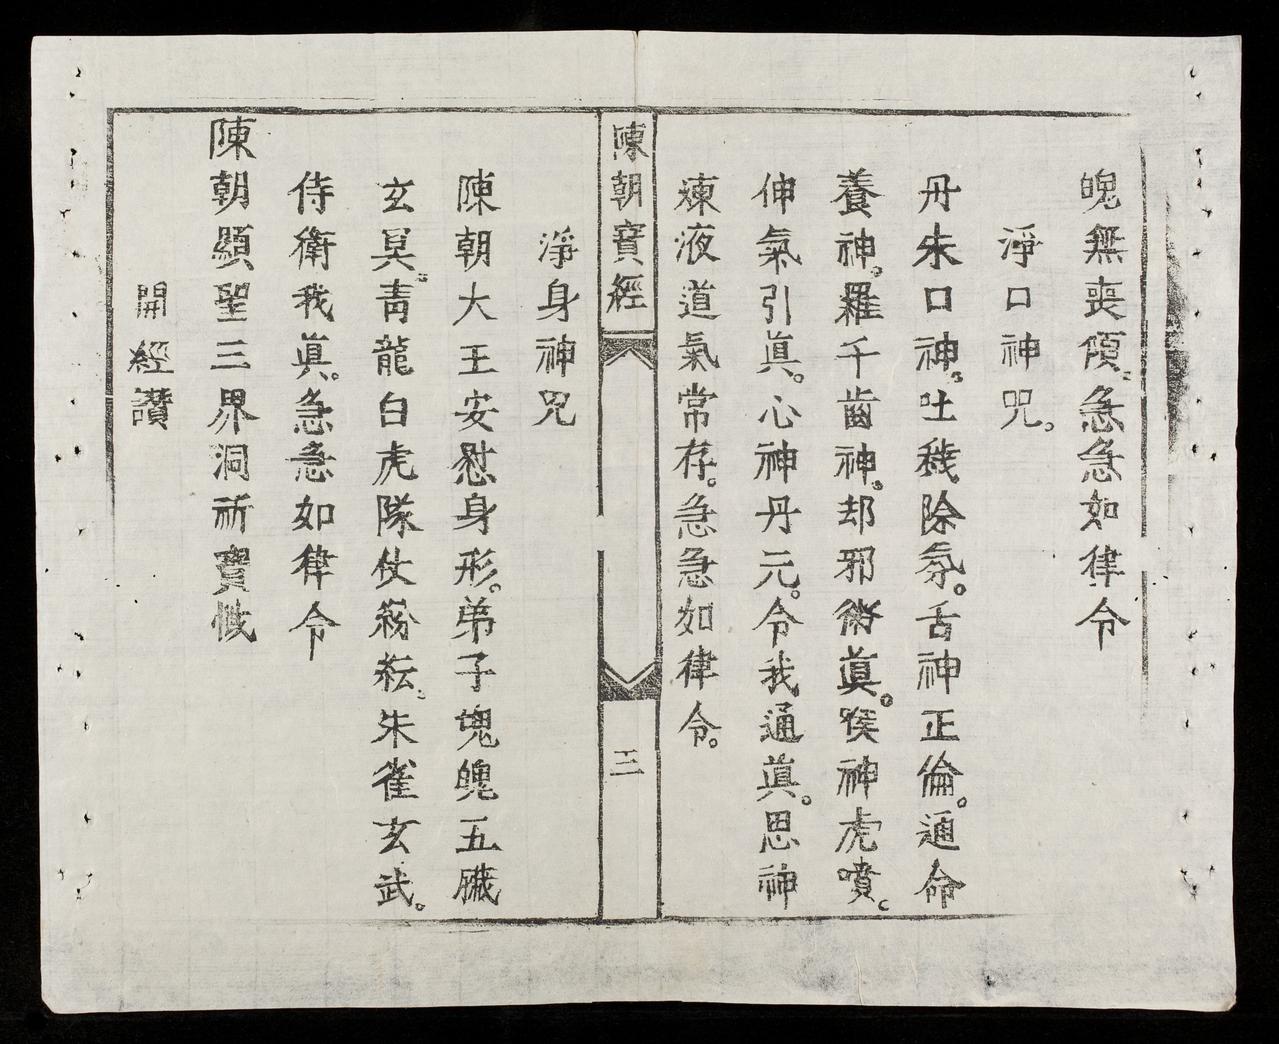 魄無喪傾。急急如律令
淨口神咒。
丹朱口神。吐穢除氛。舌神正倫。通命
養神。羅千齒神。却邪衛眞。喉神虎噴。
伸氣引眞。心神丹元。令我通眞。思神
煉液道氣常存。急急如律令。
陳朝寶經
三
淨身神咒
陳朝大王安慰身形。弟子塊魄五臟
玄冥。青龍白虎隊仗 紜。朱雀玄武。
侍衛我眞。急急如律令
陳朝顯聖三界洞祈寶懺
開經讚